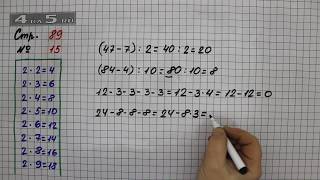 4 на 5.RU
Стр. 89
№ 15
2·2=4
2·3=6
2·4=8
2·5=10
2·6=12
2·7=14
2·8=16
2·9=18
(47-7):2=40:2=20
(84-4):10=80:10=8
12-3-3-3-3=12-3·4=12-12=0
24-8-8-8=24-8·3=